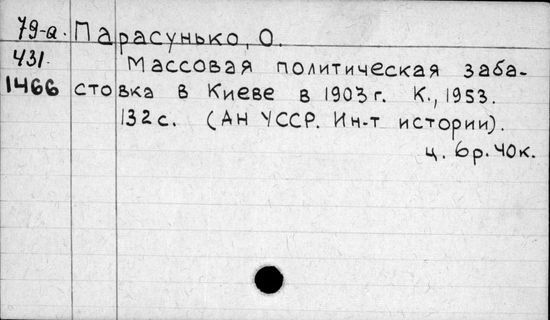 79-а. Парасунько, О.
431. Массовая политическая заба-
1466 стовка в Киеве в 1903 г. К., 1953.
132 с. (АН УССР. Ин-т истории).
ц. 6 р. 40 к.